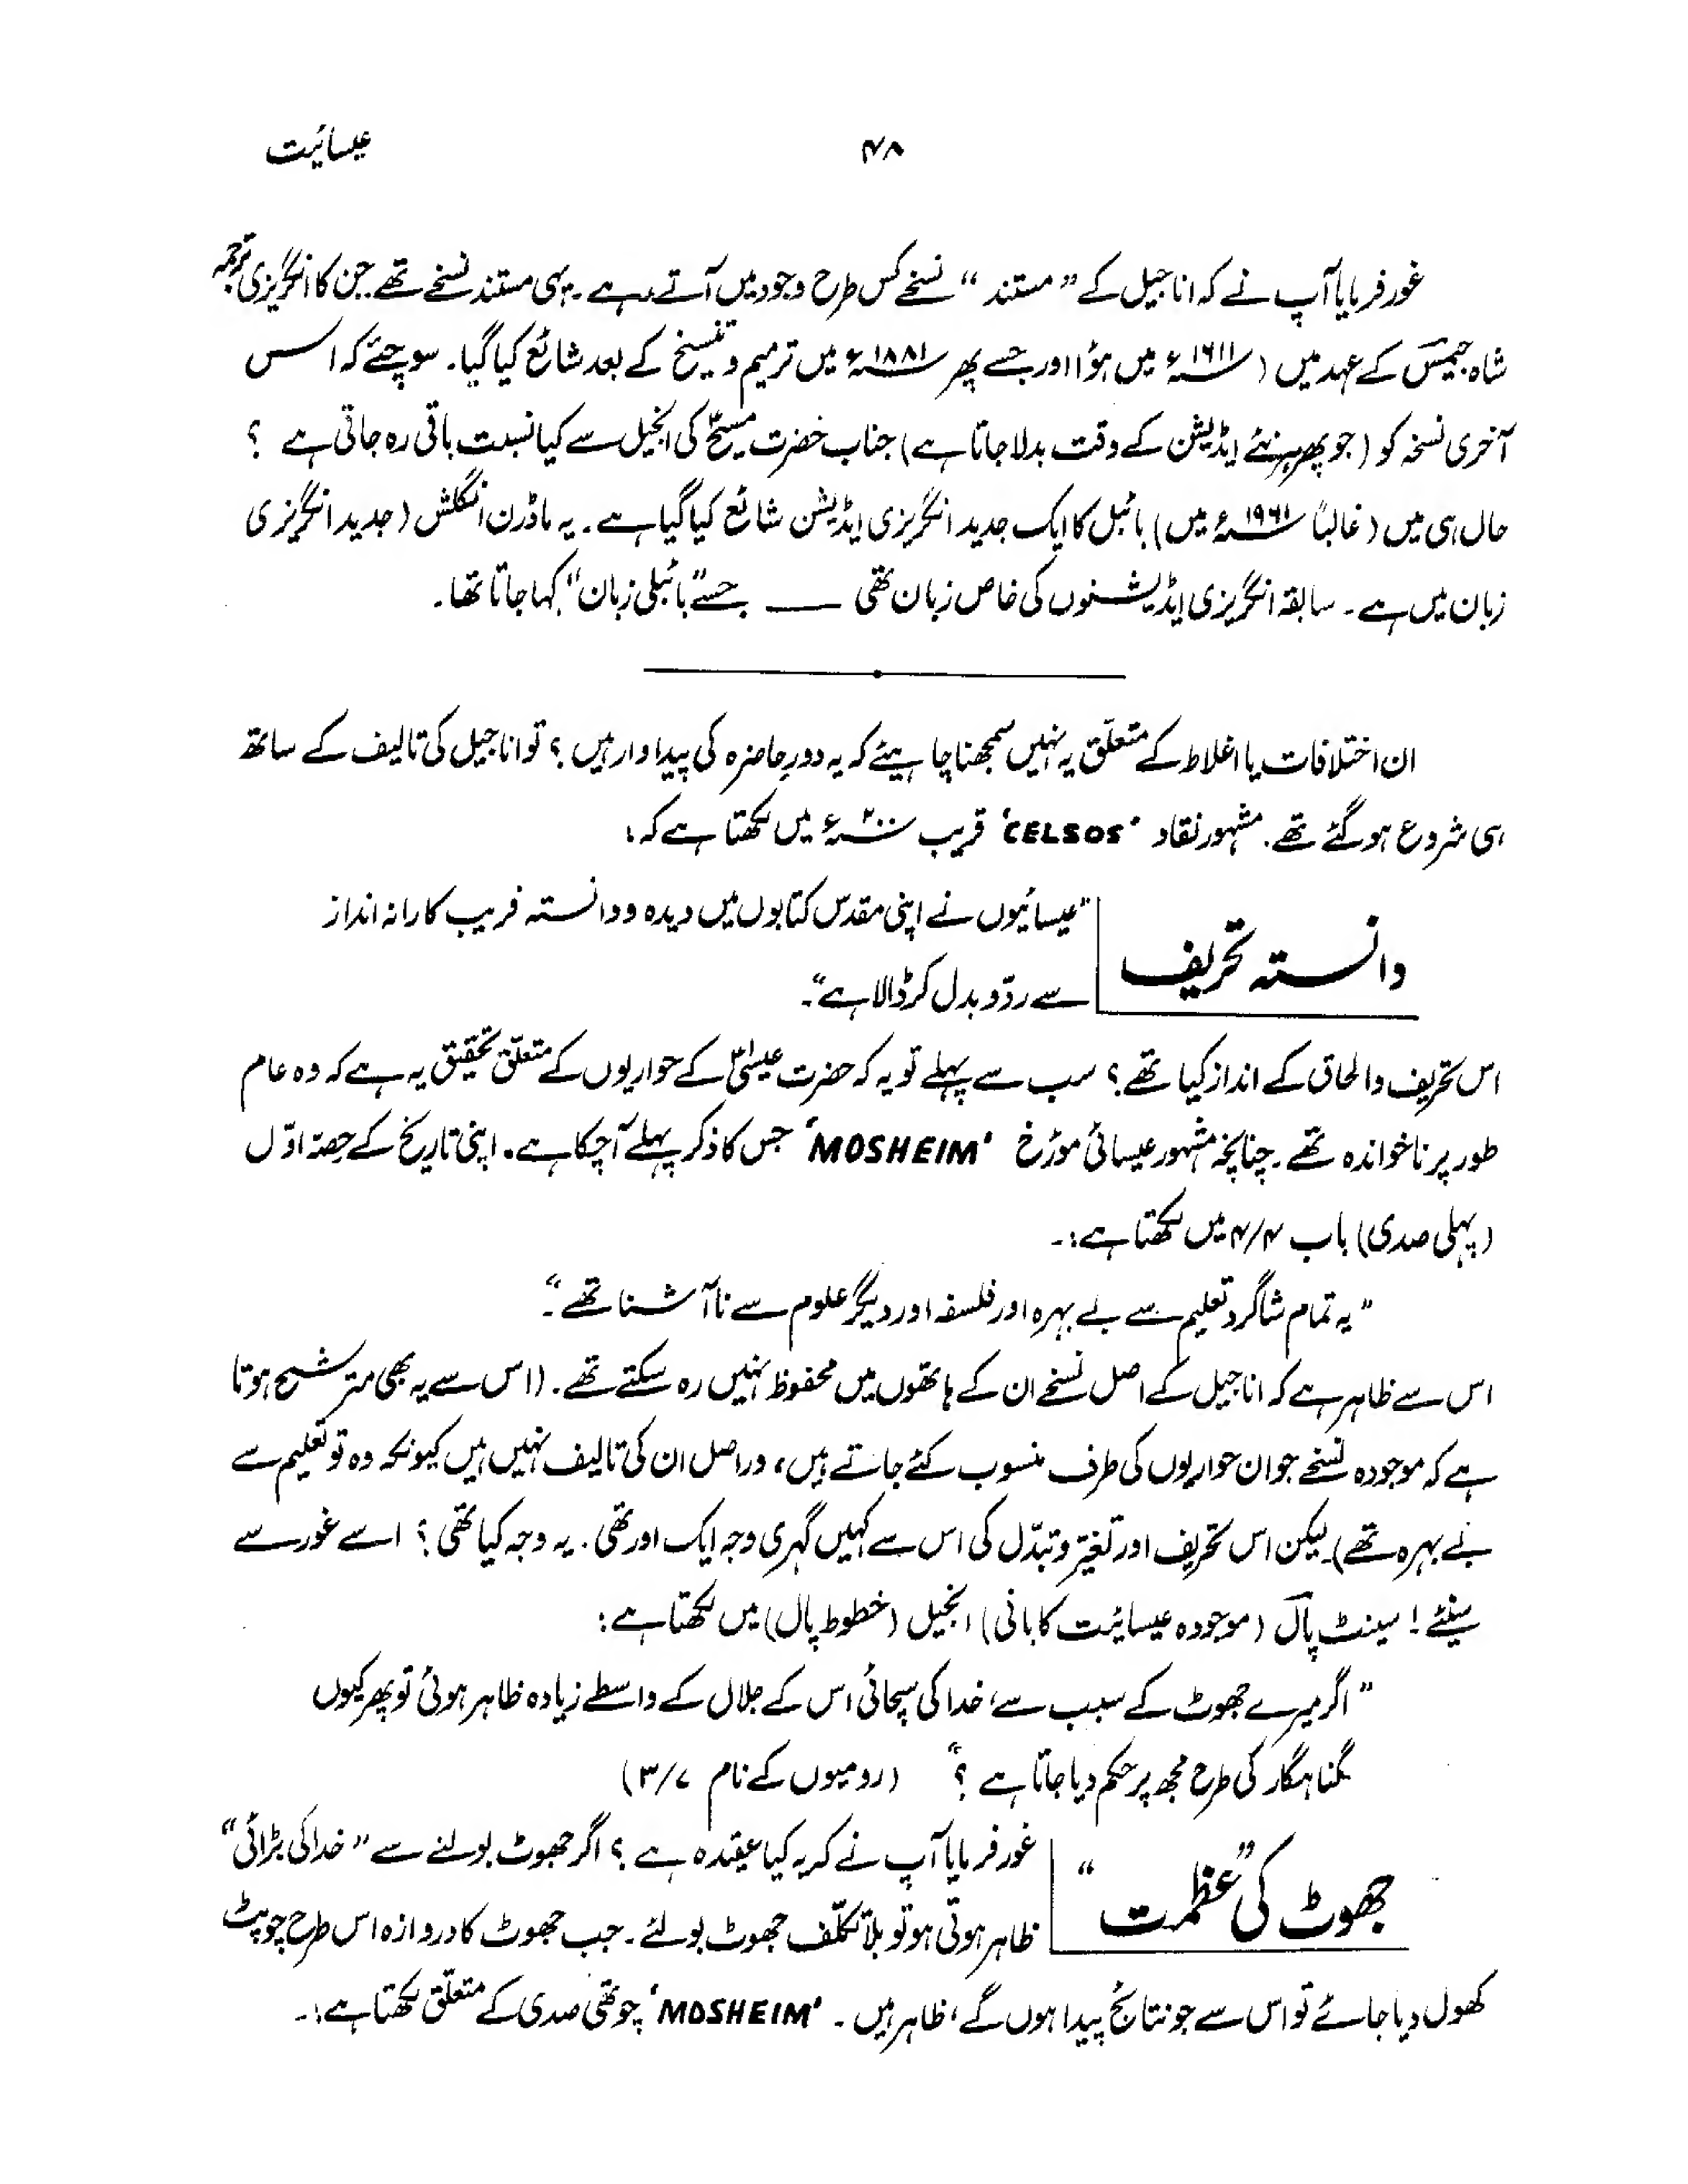 ۴۸
عیسائیت
غور فرمایا آپ نے کہ اناجیل کے ”مستند“ نسخے کس طرح وجود میں آتے رہے ۔ یہی مستند نسخے تھے جن کا انگریزی ترجمہ
شاہ جیمس کے عہد میں (۱۶۱۱ء میں ہؤا اور جسے پھر ۱۸۸۱ء میں ترمیم و تنسیخ کے بعد شائع کیا گیا۔ سوچئے کہ اس
آخری نسخہ کو (جو پھر ہر نئے ایڈیشن کے وقت بدلا جاتا ہے) جناب حضرت مسیحؑ کی انجیل سے کیا نسبت باقی رہ جاتی ہے ؟
حال ہی میں (غالباً ۱۹۶۱ء میں) بائبل کا ایک جدید انگریزی ایڈیشن شائع کیا گیا ہے۔ یہ ماڈرن انگلش (جدید انگریزی
زبان میں ہے۔ سابقہ انگریزی ایڈیشنوں کی خاص زبان تھی ــــ جسے ”بائبلی زبان“ کہا جاتا تھا۔
ان اختلافات یا اغلاط کے متعلّق یہ نہیں سمجھنا چاہیئے کہ یہ دورِ حاضرہ کی پیداوار ہیں ؟ تو اناجیل کی تالیف کے ساتھ
ہی شروع ہو گئے تھے۔ مشہور نقاد 'CELSOS' قریب ۲۰۰ء میں لکھتا ہے کہ:
دانستہ تحریف
”عیسائیوں نے اپنی مقدس کتابوں میں دیدہ و دانستہ فریب کارانہ انداز
سے ردّ و بدل کر ڈالا ہے“۔
اس تحریف و الحاق کے انداز کیا تھے؟ سب سے پہلے تو یہ کہ حضرت عیسٰیؑ کے حواریوں کے متعلّق تحقیق یہ ہے کہ وہ عام
طور پر ناخواندہ تھے۔ چنانچہ مشہور عیسائی مؤرخ 'MOSHEIM' جس کا ذکر پہلے آ چکا ہے۔ اپنی تاریخ کے حصّہ اوّل
(پہلی صدی) باب ۴/۴ میں لکھتا ہے:۔
”یہ تمام شاگرد تعلیم سے بے بہرہ اور فلسفہ اور دیگر علوم سے نا آشنا تھے“۔
اس سے ظاہر ہے کہ اناجیل کے اصل نسخے ان کے ہاتھوں میں محفوظ نہیں رہ سکتے تھے۔ (اس سے یہ بھی مترشح ہوتا
ہے کہ موجودہ نسخے جو ان حواریوں کی طرف منسوب کئے جاتے ہیں، دراصل ان کی تالیف نہیں ہیں کیونکہ وہ تو تعلیم سے
بے بہرہ تھے) لیکن اس تحریف اور تغیّر و تبدّل کی اس سے کہیں گہری وجہ ایک اور تھی۔ یہ وجہ کیا تھی؟ اسے غور سے
سنئے! سینٹ پال (موجودہ عیسائیت کا بانی) انجیل (خطوط پال) میں لکھتا ہے:
”اگر میرے جھوٹ کے سبب سے، خدا کی سچائی اس کے جلال کے واسطے زیادہ ظاہر ہوئی تو پھر کیوں
گناہگار کی طرح مجھ پر حکم دیا جاتا ہے ؟“ (رومیوں کے نام ۳/۷)
جھوٹ کی ”عظمت“
غور فرمایا آپ نے کہ یہ کیا عقیدہ ہے ؟ اگر جھوٹ بولنے سے ”خدا کی بڑائی“
ظاہر ہوتی ہو تو بلا تکلّف جھوٹ بولئے۔ جب جھوٹ کا دروازہ اس طرح چوپٹ
کھول دیا جائے تو اس سے جو نتائج پیدا ہوں گے، ظاہر ہیں۔ 'MOSHEIM' چوتھی صدی کے متعلّق لکھتا ہے:۔